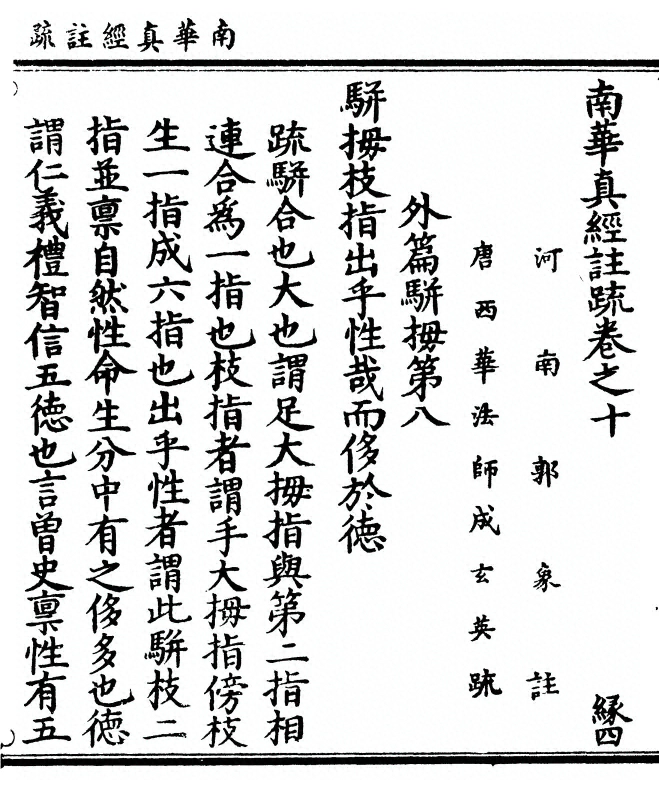 南華真經註疏
南華真經註疏卷之十 緣四
河南郭象註
唐西華法師成玄英疏
外篇駢拇第八
駢拇枝指出乎性哉而侈於德
疏駢合也大也謂足大拇指與第二指相
連合爲一指也枝指者謂手大拇指傍枝
生一指成六指也出乎性者謂此駢枝二
指並禀自然性命生分中有之侈多也德
謂仁義禮智信五德也言曾史禀性有五